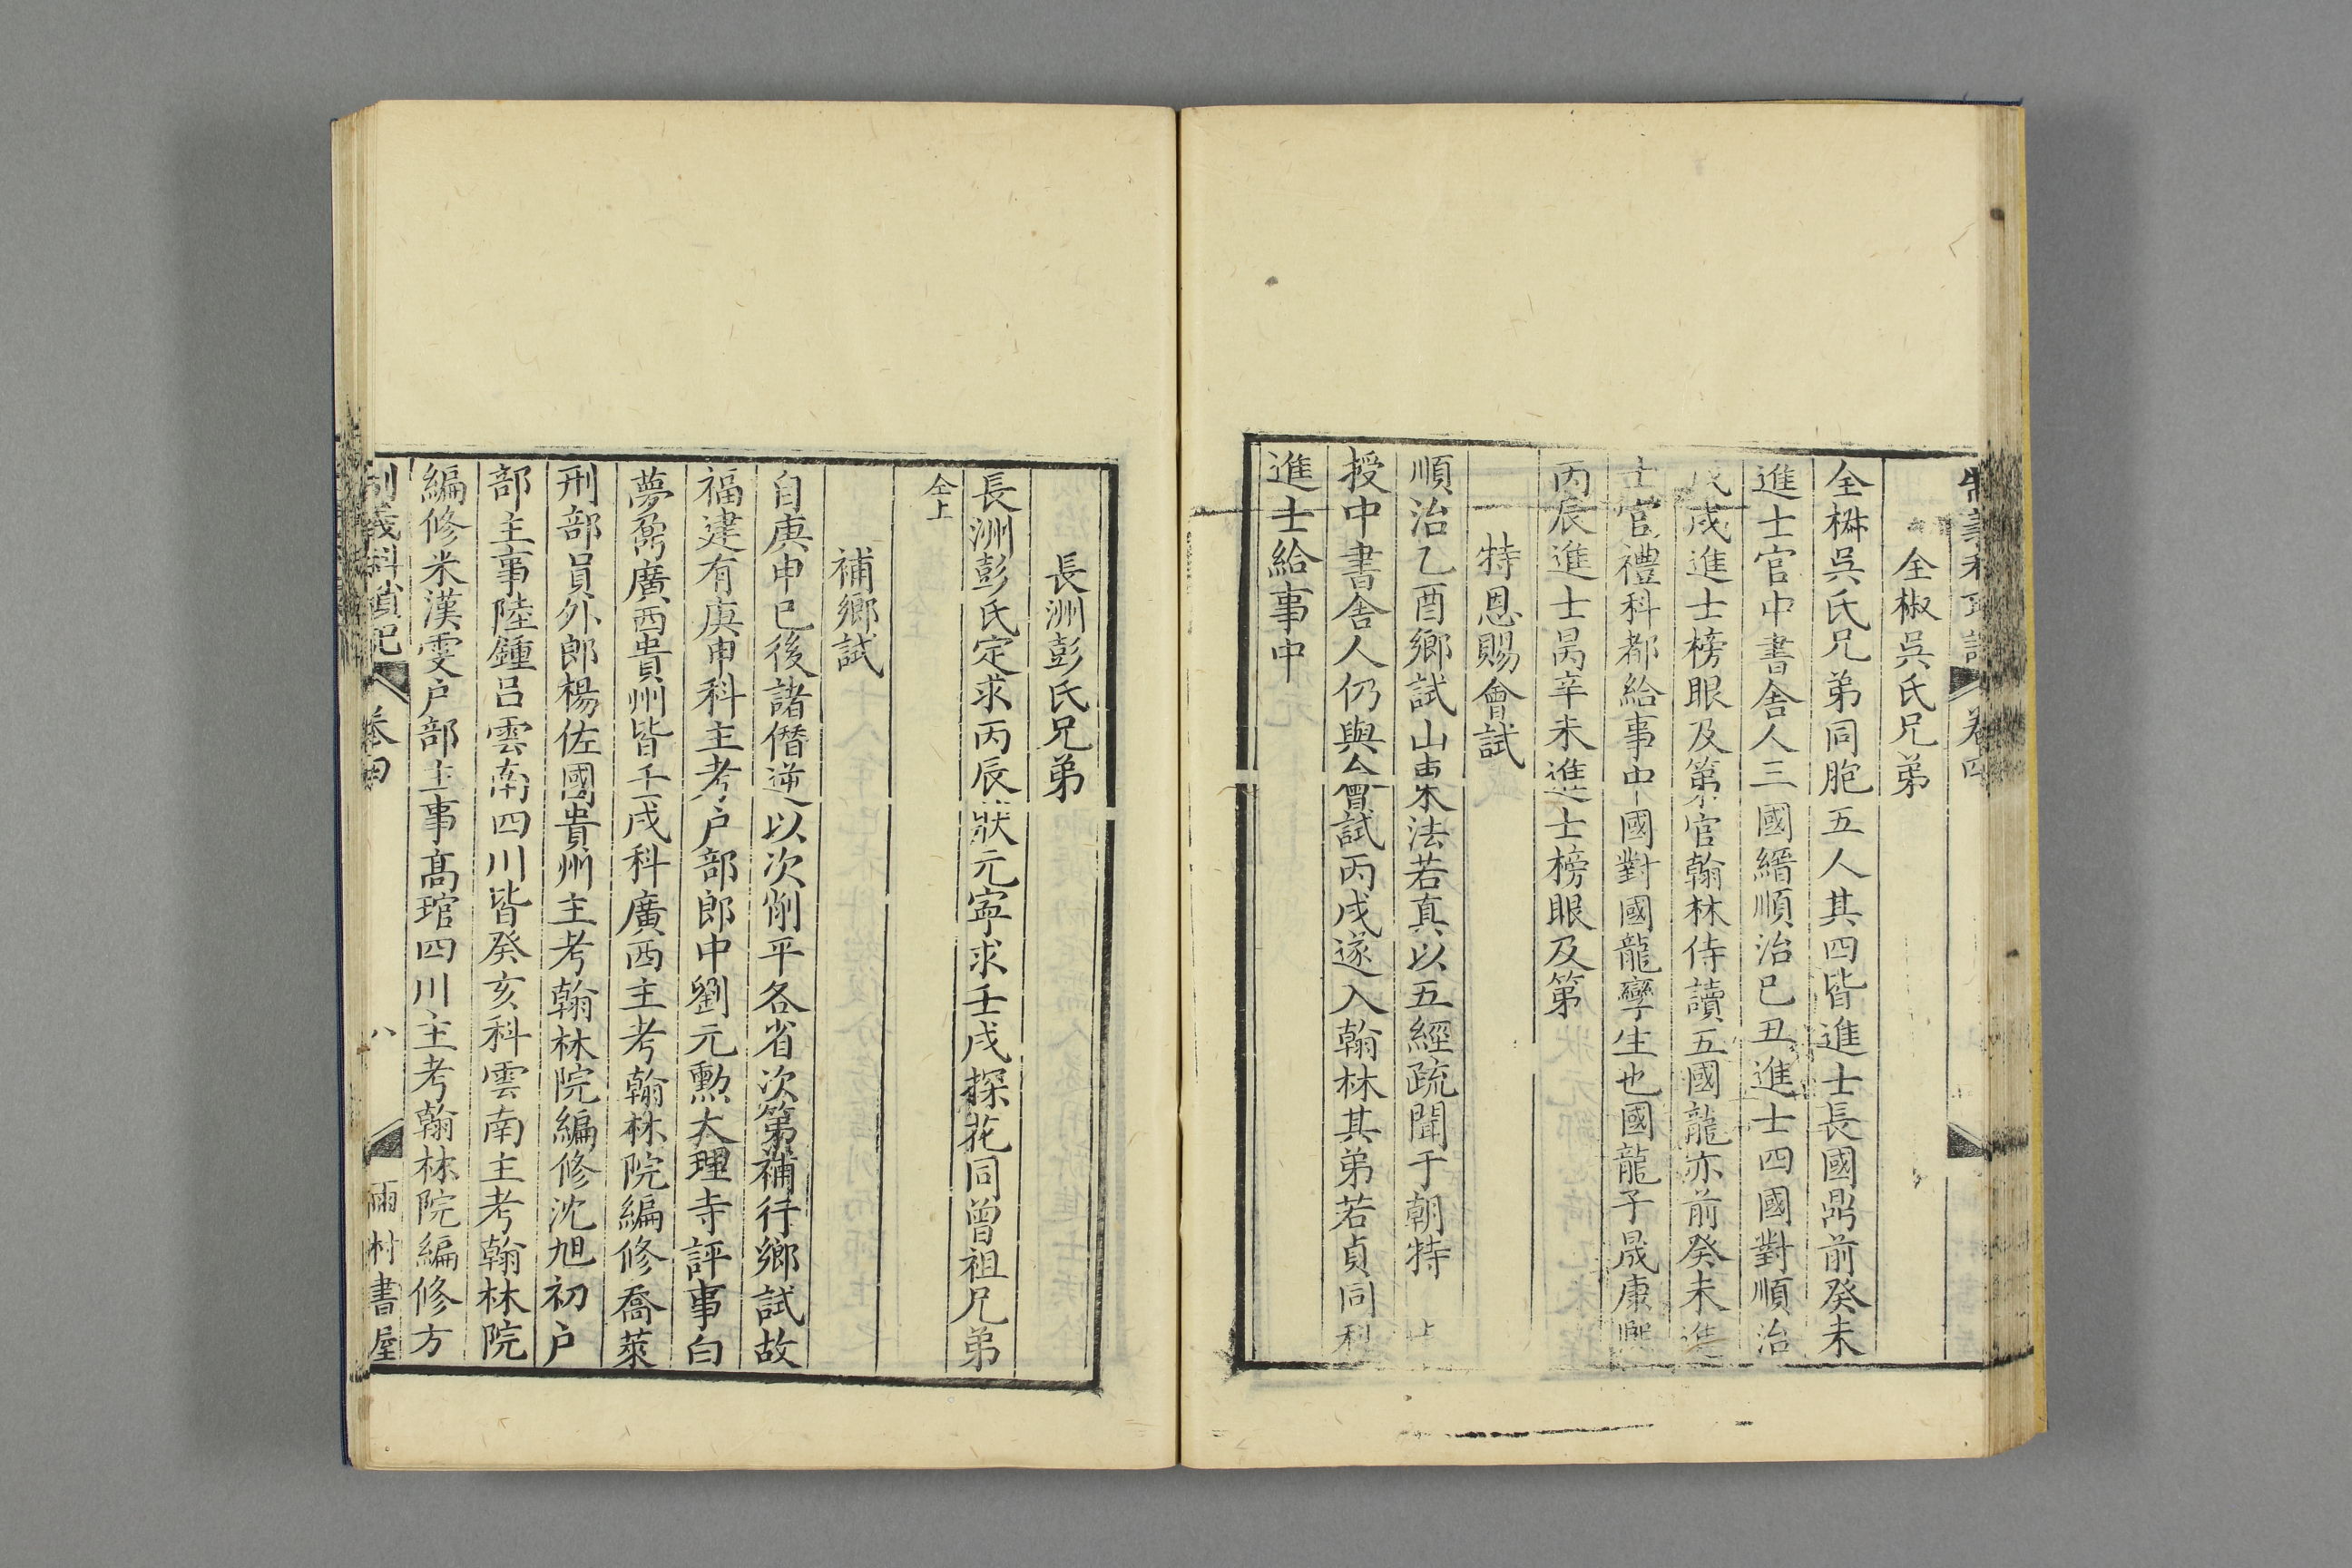 全椒吳氏兄弟
全椒吳氏兄弟同胞五人其四皆進士長國鼎前癸未
進士官中書舍人三國縉順治己丑進士四國對順治
戊戌進士榜眼及第官翰林侍讀五國龍亦前癸未進
士官禮科都給事中國對國龍孿生也國龍子晟康熙
丙辰進士昺辛未進士榜眼及第
特恩賜會試
順治乙酉鄉試山東朱法若真以五經疏聞于朝特
授中書舍人仍與會試丙戌遂入翰林其弟若貞同科
進士給事中
長洲彭氏兄弟
長洲彭氏定求丙辰狀元寧求壬戌探花同曾祖兄弟
仝上
補鄉試
自庚申已後諸僭逆以次削平各省次第補行鄉試故
福建有庚申科主考户部郎中劉元勲大理寺評事白
夢鼐廣西貴州皆壬戌科廣西主考翰林院編修喬萊
刑部員外郎楊佐國貴州主考翰林院編修沈旭初户
部主事陸鍾呂雲南四川皆癸亥科雲南主考翰林院
編修米漢雯户部主事髙琯四川主考翰林院編修方
制義科瑣記 卷四 八 雨村書屋